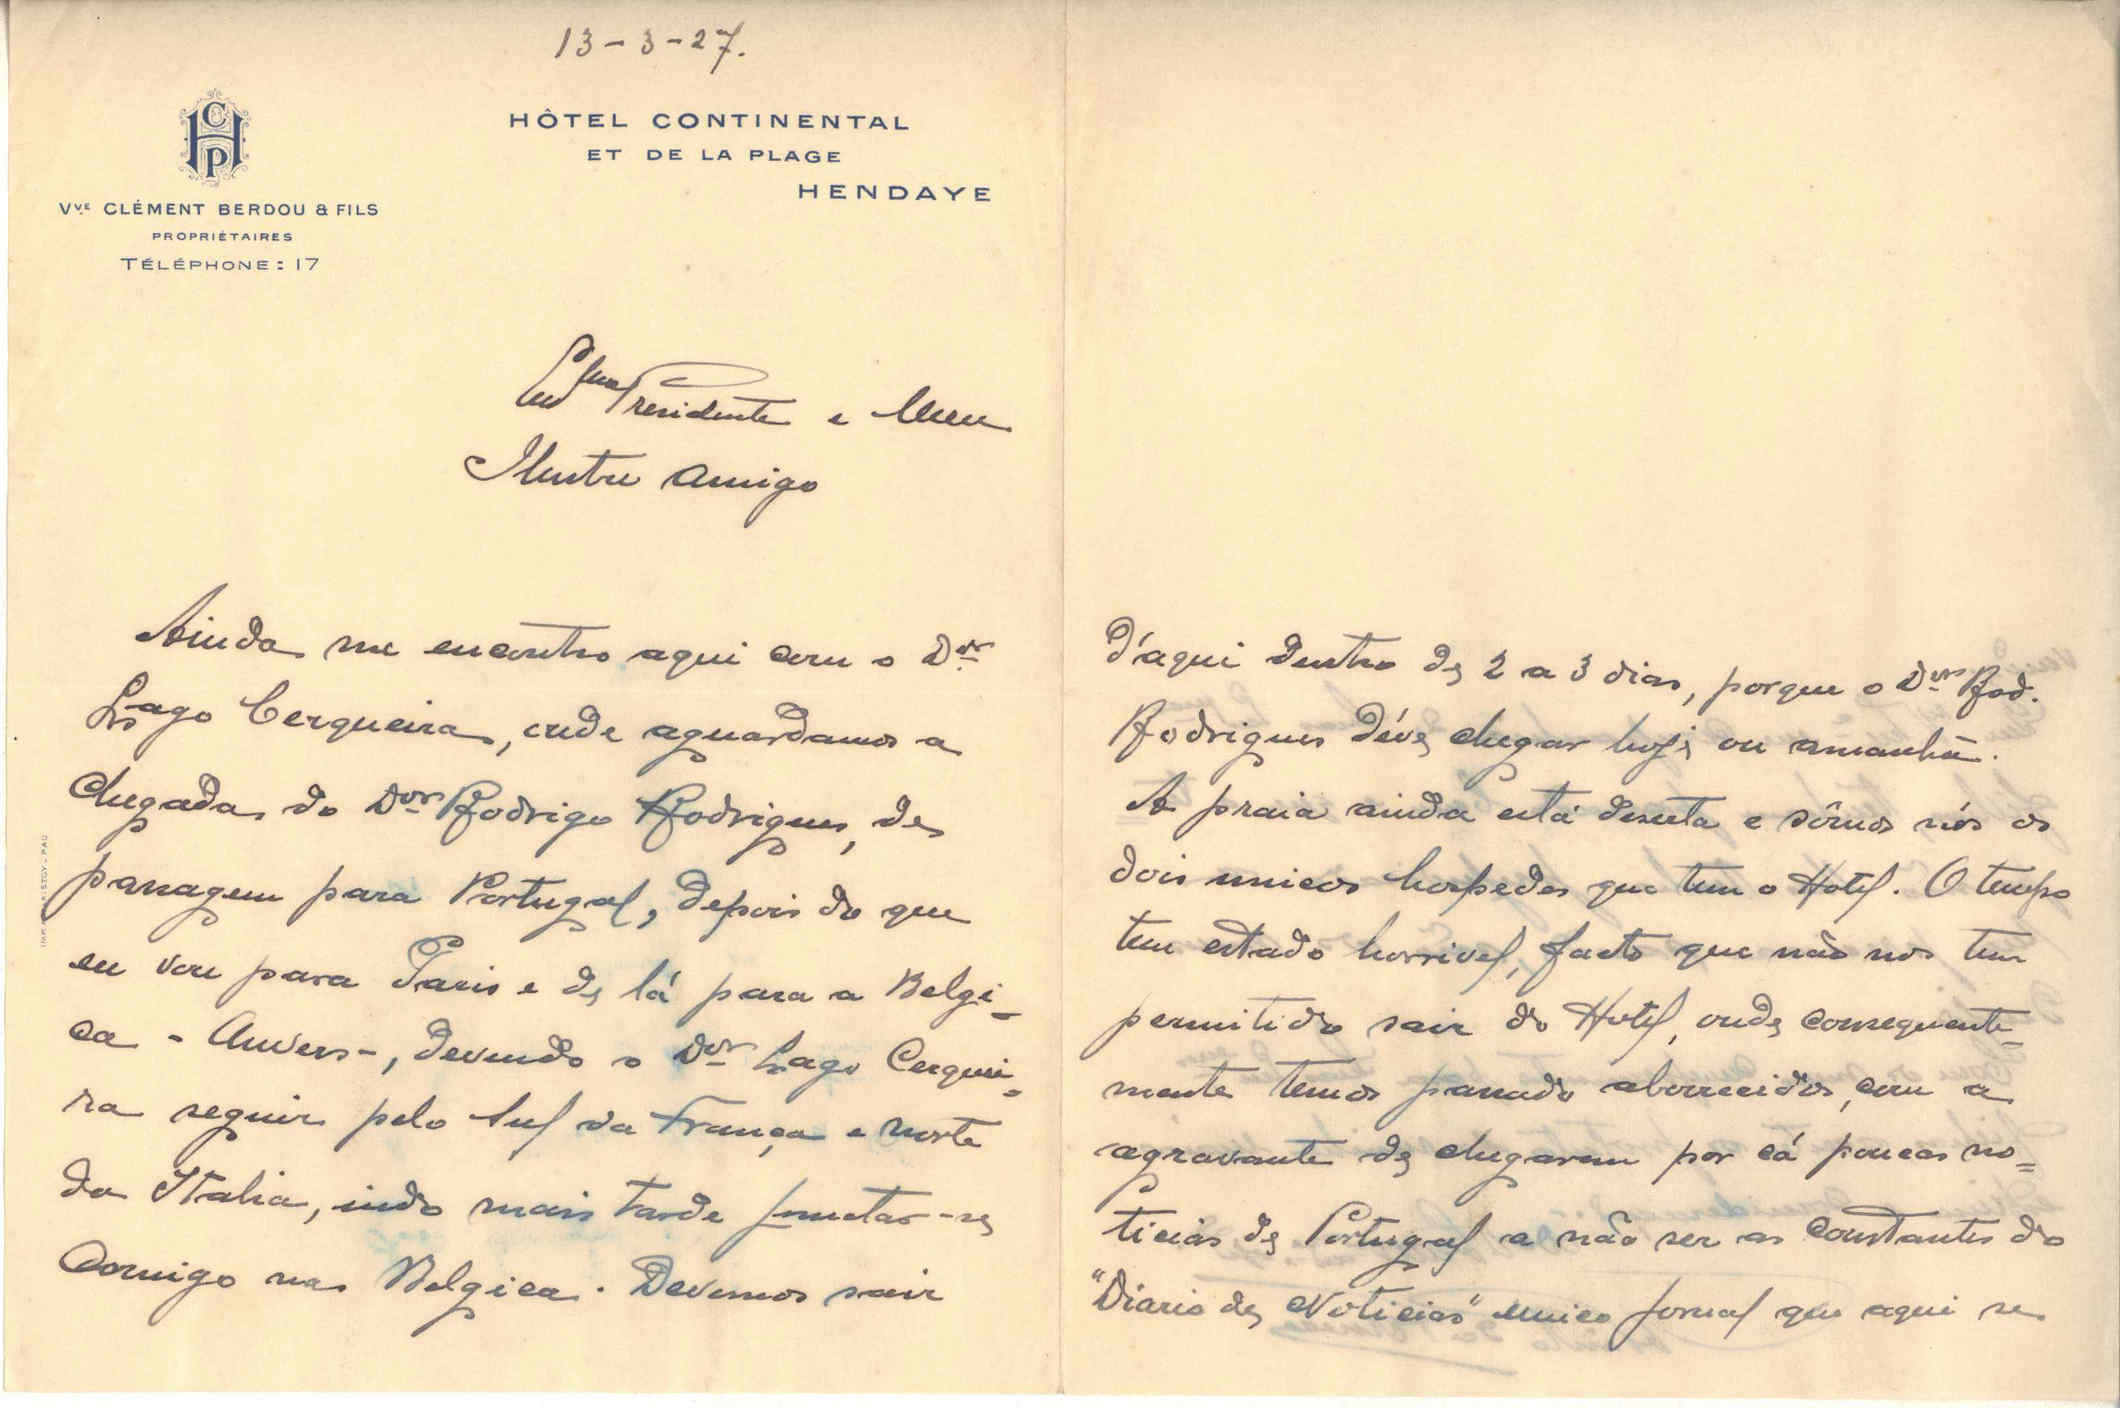 13-3-27.
HÔTEL CONTINENTAL
ET DE LA PLAGE
HENDAYE
CHP
Vve CLÉMENT BERDOU & FILS
PROPRIÉTAIRES
TÉLÉPHONE: 17
Exmo Presidente e Meu
Ilustre Amigo
Ainda me encontro aqui com o Dor
Lago Cerqueira, onde aguardamos a
chegada do Dor Rodrigo Rodrigues, de
passagem para Portugal, depois do que
eu vou para Paris e de lá para a Belgi-
ca - Anvers -, devendo o Dor Lago Cerquei-
ra seguir pelo Sul da França e norte
da Italia, indo mais tarde juntar-se
comigo na Belgica. Devemos sair
d'aqui dentro de 2 a 3 dias, porque o Dor Rod.
Rodrigues déve chegar hoje ou amanhã.
A praia ainda está deserta e sômos nós os
dois unicos hospedes que tem o Hotel. O tempo
tem estado horrivel, facto que não nos tem
permitido sair do Hotel, onde consequente-
mente temos passado aborrecidos, com a
agravante de chegarem por cá poucas no-
ticias de Portugal a não ser as constantes do
"Diario de Noticias" unico jornal que aqui se